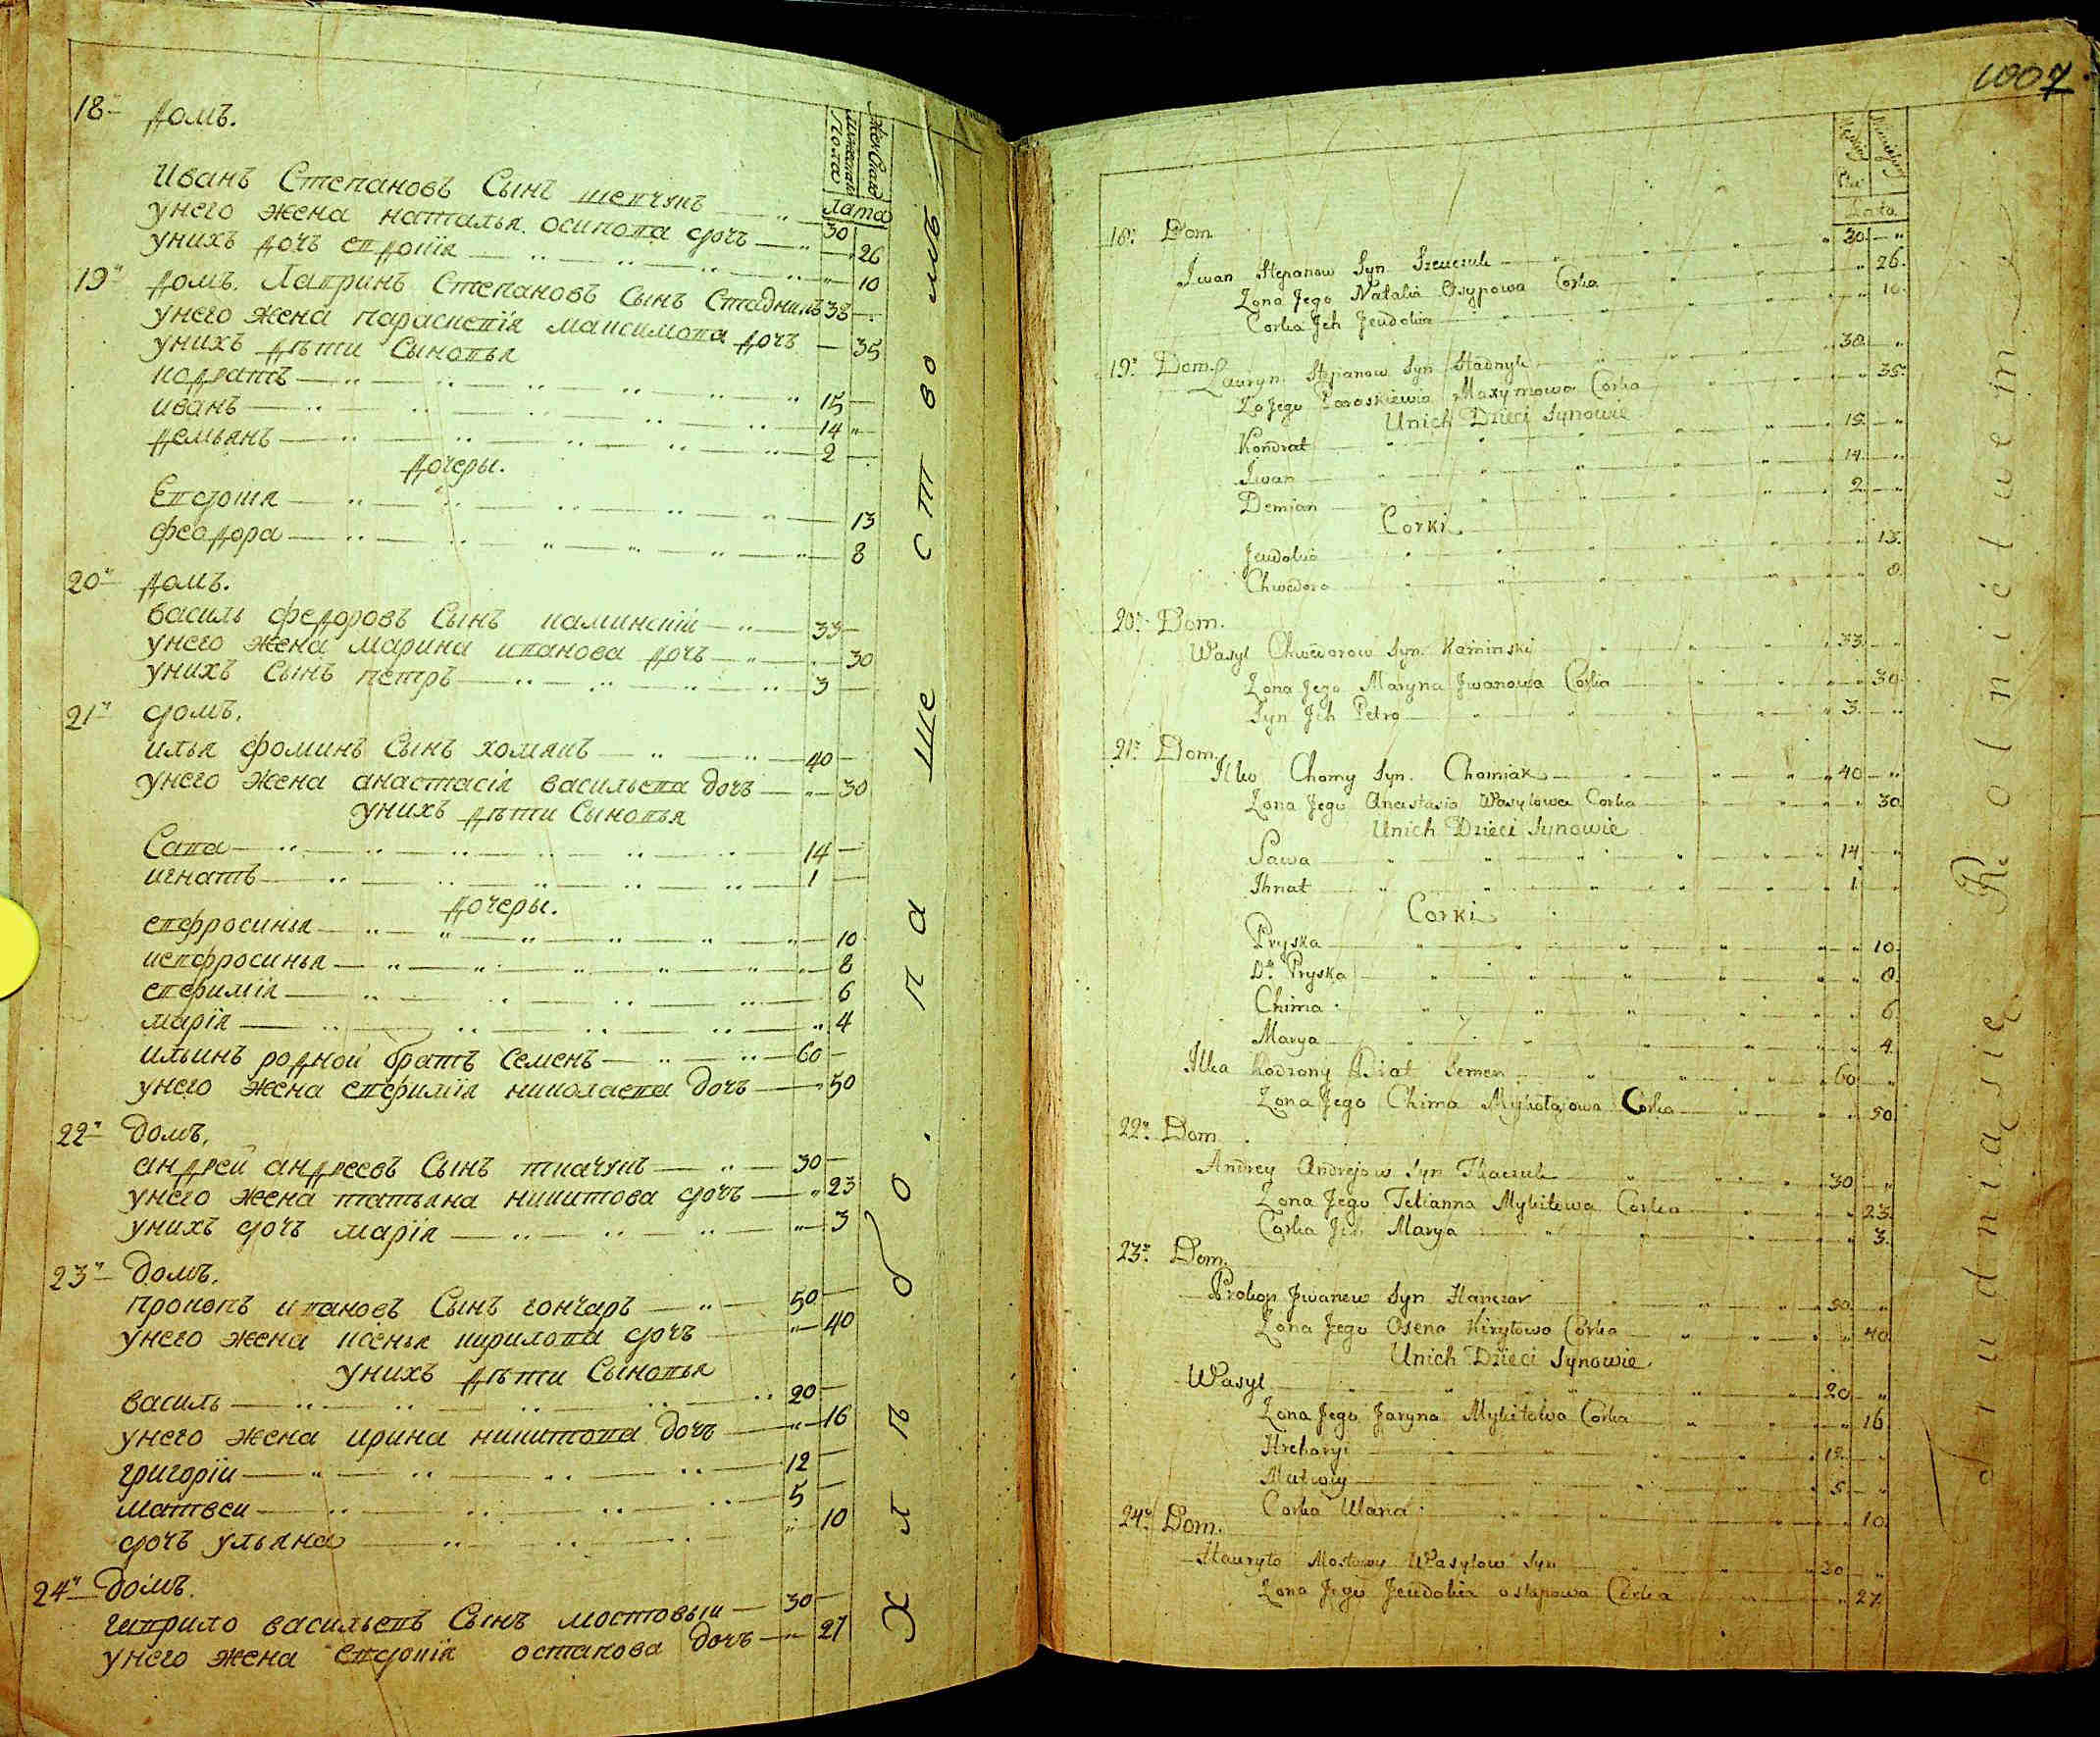 18 домъ.
мужеска полу
женска
лата
Иванъ Степановъ Сынъ шевчукъ 30
унего жена наталья осипова дочъ 26
унихъ дочъ евдокія 10
19 домъ. Лавринъ Степановъ Сынъ Стадникъ 38
унего жена параскевія максимова дочъ 35
унихъ дѣти Сыновья
кодратъ 15
иванъ 14
демьянъ 2
дочеры.
Евдокія 13
феодора 8
20 домъ.
василь федоровъ Сынъ каминскій 33
унего жена марина иванова дочъ 30
унихъ Сынъ петръ 3
21 домъ.
илья фоминъ Сынъ хомякъ 40
унего жена анастасія васильева дочъ 30
унихъ дѣти Сыновья
Сава 14
игнатъ 1
дочеры.
евфросинья 10
иевфросинья 8
евфимія 6
марія 4
ильинъ родной братъ семенъ 60
унего жена евфимія николаева дочъ 50
22 домъ.
андрей андреевъ Сынъ ткачукъ 30
унего жена татьяна никитова дочъ 23
унихъ дочъ марія 3
23 домъ.
прокопъ ивановъ Сынъ гончаръ 50
унего жена ксенья кирилова дочъ 40
унихъ дѣти Сыновья
василь 20
унего жена ирина никитова дочъ 16
григорій 12
матвеи 5
дочъ ульяна 10
24 домъ.
гаврило васильевъ Сынъ мостовыи 30
унего жена евдокія остапова дочъ 27
Хлѣбо.па ще ство мъ
1007
Lata
18. Dom
Jwan Stepanow Syn Szewczuk 30
Zona Jego Natalia Osypowa Corka 26
Corka Jch Jeudokia 10
19. Dom.
Lauryn Stepanow Syn Stadnyk 38
Zo Jego Paraskiewia Maxymowa Corka 35
Unich Dzieci Synowie
Kondrat 15
Jwan 14
Demian 2
Corki
Jeudokia 13
Chwedora 8
20. Dom.
Wasyl Chwedorow Syn Kaminski 33
Zona Jego Maryna Jwanowa Corka 30
Syn Jch Petro 3
21. Dom
Ilko Chomy Syn Chomiak 40
Zona Jego Anastasia Wasylowa Corka 30
Unich Dzieci Synowie
Sawa 14
Ihnat 1
Corki
Pryska 10
Da Pryska 8
Chima 6
Marya 4
Ilka Rodzony Brat Semen 60
Zona Jego Chima Mykołajowa Corka 50
22. Dom
Andrey Andrejow Syn Tkaczuk 30
Zona Jego Tetianna Mykitowa Corka 23
Corka Jch Marya 3
23. Dom.
Prokop Jwanow Syn Hanczar 50
Zona Jego Osena Kiryłowa Corka 40
Unich Dzieci Synowie
Wasyl 20
Zona Jego Jaryna Mykitowa Corka 16
Hrehoryi 12
Matwiy 5
Corka Ulana 10
24. Dom.
Hauryło Mostowy Wasylow Syn 30
Zona Jego Jeudokia Ostapowa Corka 27
Trudniący się Rolnictwem